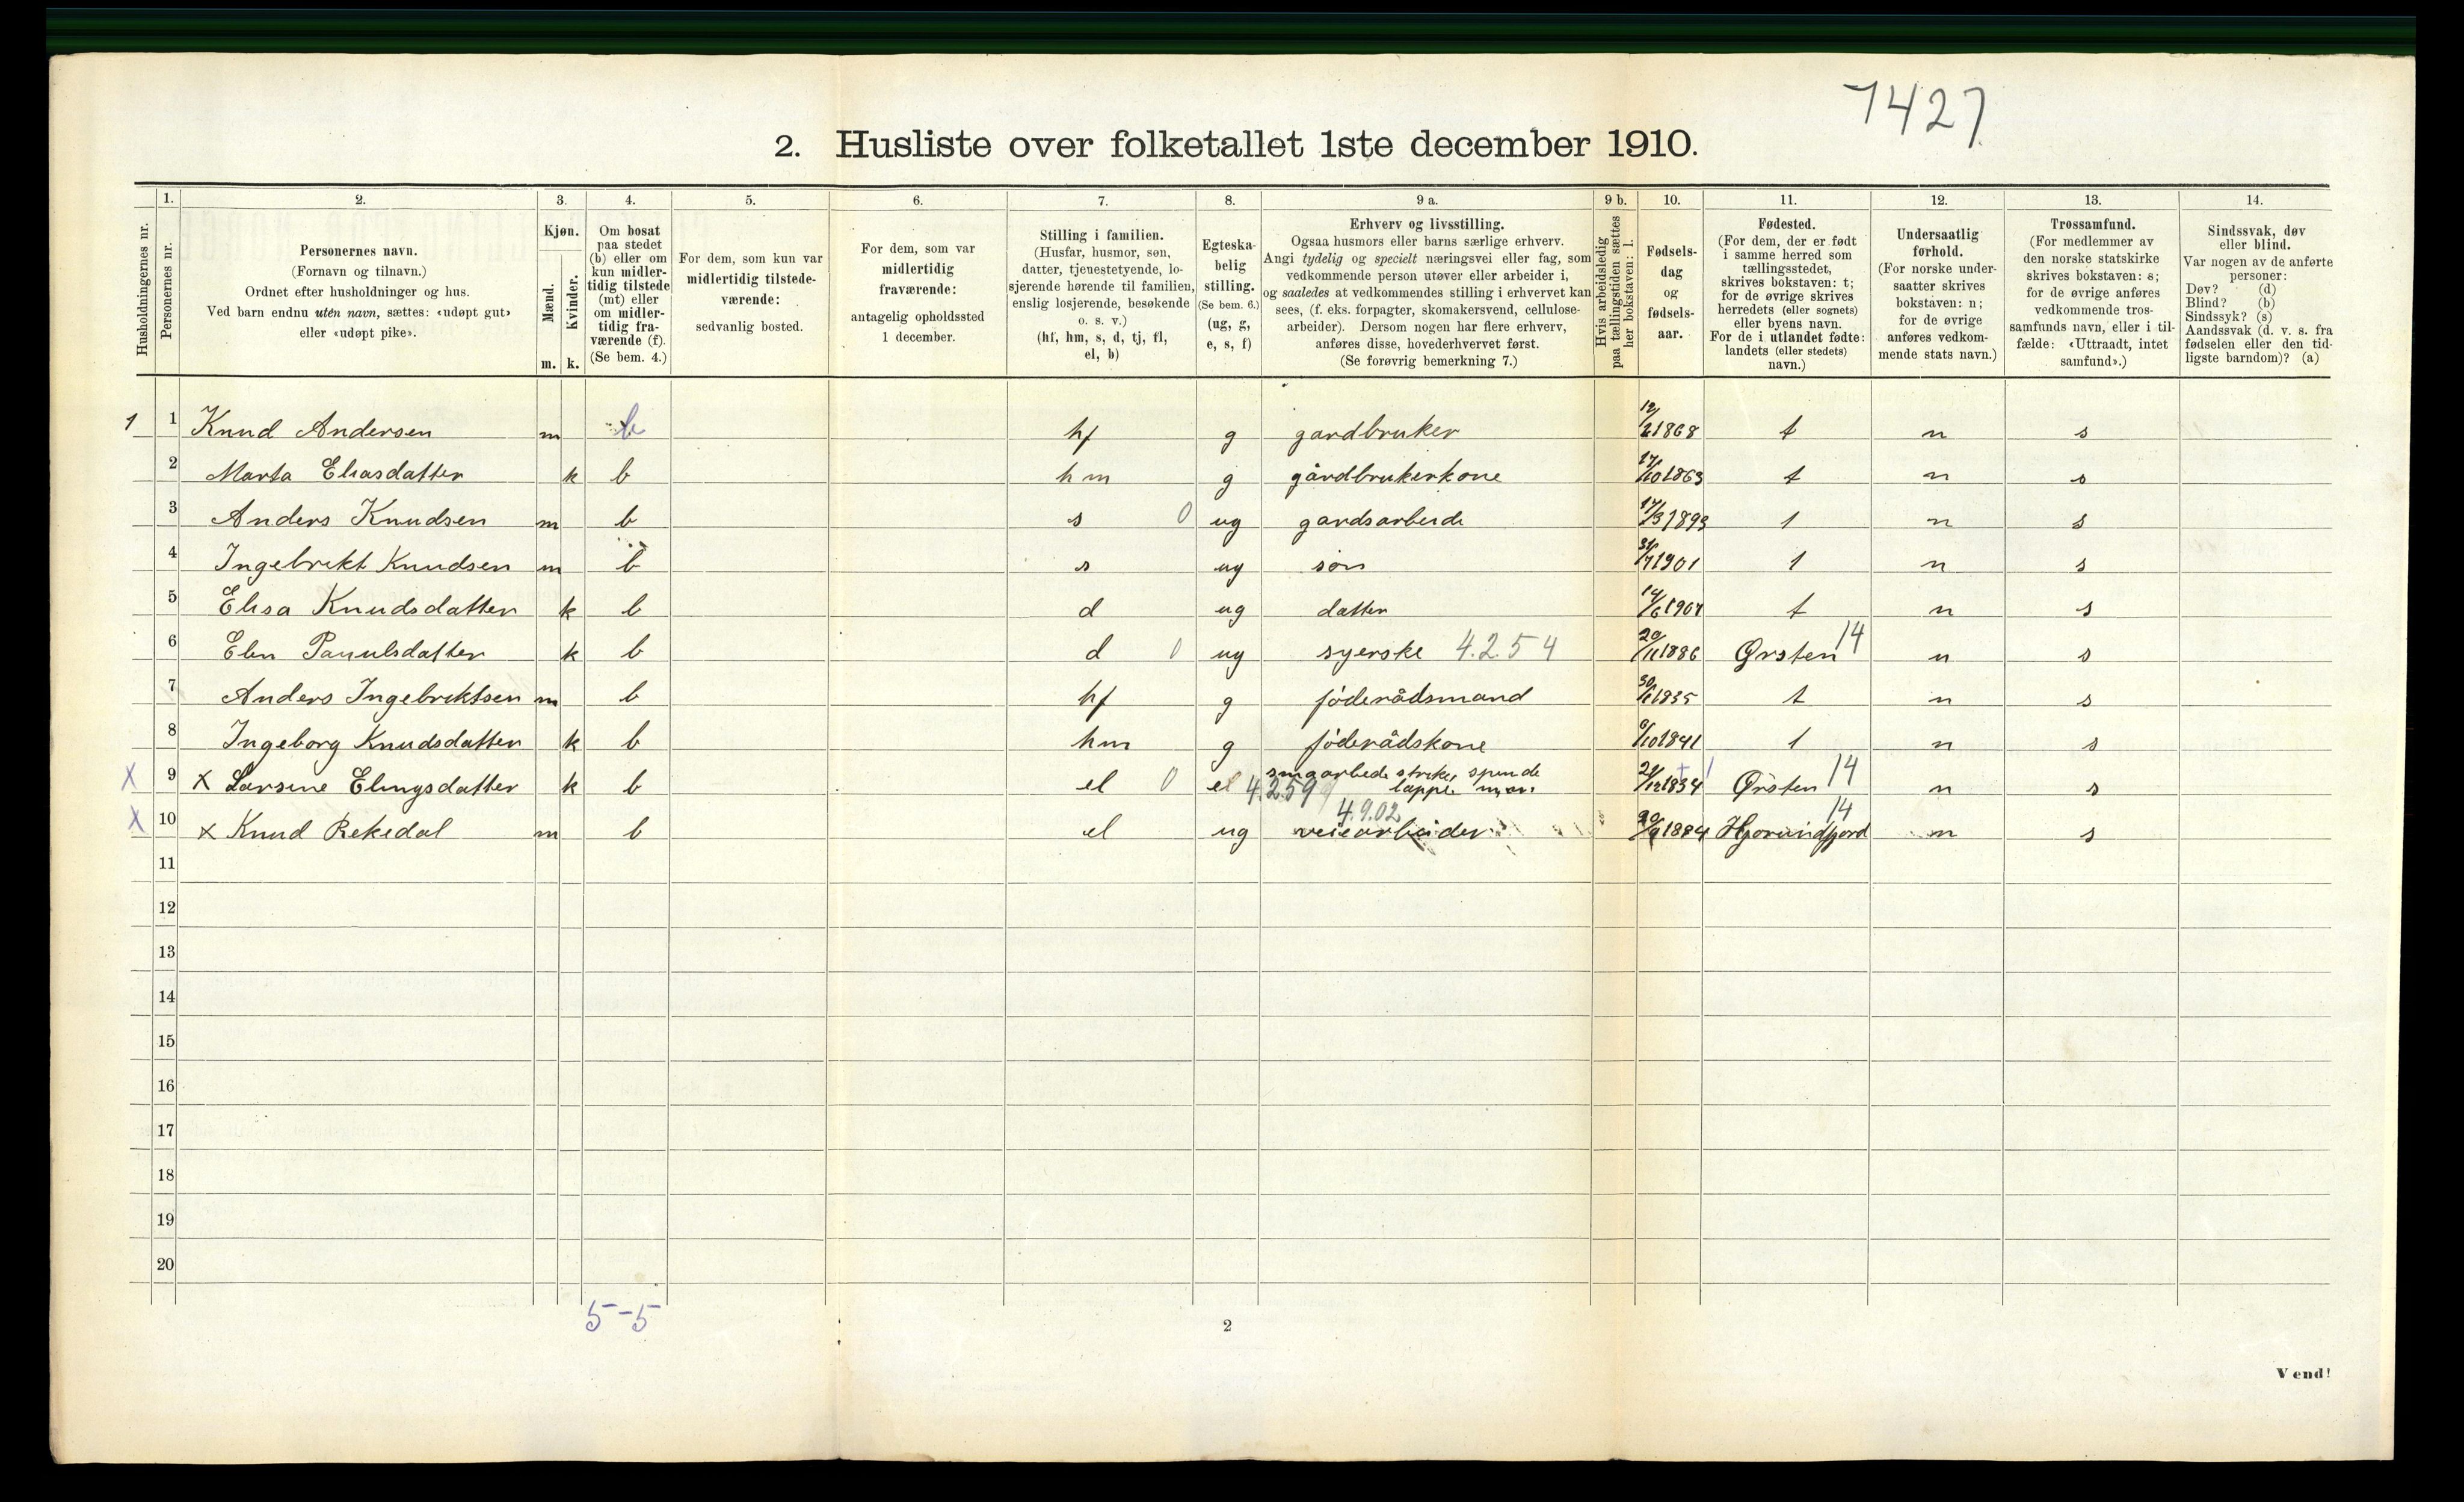 7427
2. Husliste over folketallet 1ste december 1910.
1. 2. 3. 4. 5. 6. 7. 8. 9 a. 9 b. 10. 11. 12. 13. 14.
Husholdningernes nr.
Personernes nr.
Personernes navn.
(Fornavn og tilnavn.)
Ordnet efter husholdninger og hus.
Ved barn endnu uten navn, sættes: «udøpt gut»
eller «udøpt pike».
Kjøn.
Mænd.
Kvinder.
m. k.
Om bosat
paa stedet
(b) eller om
kun midler-
tidig tilstede
(mt) eller
om midler-
tidig fra-
værende (f).
(Se bem. 4.)
For dem, som kun var
midlertidig tilstede-
værende:
sedvanlig bosted.
For dem, som var
midlertidig
fraværende:
antagelig opholdssted
1 december.
Stilling i familien.
(Husfar, husmor, søn,
datter, tjenestetyende, lo-
sjerende hørende til familien,
enslig losjerende, besøkende
o. s. v.)
(hf, hm, s, d, tj, fl,
el, b)
Egteska-
belig
stilling.
(Se bem. 6.)
(ug, g,
e, s, f)
Erhverv og livsstilling.
Ogsaa husmors eller barns særlige erhverv.
Angi tydelig og specielt næringsvei eller fag, som
vedkommende person utøver eller arbeider i,
og saaledes at vedkommendes stilling i erhvervet kan
sees, (f. eks. forpagter, skomakersvend, cellulose-
arbeider). Dersom nogen har flere erhverv,
anføres disse, hovederhvervet først.
(Se forøvrig bemerkning 7.)
Hvis arbeidsledig
paa tællingstiden sættes
her bokstaven: l.
Fødsels-
dag
og
fødsels-
aar.
Fødested.
(For dem, der er født
i samme herred som
tællingsstedet,
skrives bokstaven: t;
for de øvrige skrives
herredets (eller sognets)
eller byens navn.
For de i utlandet fødte:
landets (eller stedets)
navn.)
Undersaatlig
forhold.
(For norske under-
saatter skrives
bokstaven: n;
for de øvrige
anføres vedkom-
mende stats navn.)
Trossamfund.
(For medlemmer av
den norske statskirke
skrives bokstaven: s;
for de øvrige anføres
vedkommende tros-
samfunds navn, eller i til-
fælde: «Uttraadt, intet
samfund».)
Sindssvak, døv
eller blind.
Var nogen av de anførte
personer:
Døv? (d)
Blind? (b)
Sindssyk? (s)
Aandssvak (d. v. s. fra
fødselen eller den tid-
ligste barndom)? (a)
1 1 Knud Andersen m b hf g gardbruker 12/2 1868 t n s
2 Marta Eliasdatter k b hm g gårdbrukerkone 17/10 1863 t n s
3 Anders Knudsen m b s 0 ug gardsarbeide 17/3 1893 t n s
4 Ingebrikt Knudsen m b s ug søn 31/7 1901 t n s
5 Elisa Knudsdatter k b d ug datter 14/6 1907 t n s
6 Elen Paulsdatter k b d 0 ug syerske 4.2.54 20/11 1886 Ørsten 14 n s
7 Anders Ingebriktsen m b hf g føderådsmand 1835 t n s
8 Ingeborg Knudsdatter k b hm g føderådskone 6/10 1841 t n s
X 9 x Larsine Elingsdatter k b el 0 el 4.259 smaarbede strike, spinde lappe m.m. 21/12 1834 Ørsten 14 n s
X 10 x Knud Rekedal m b el ug 4.9.02 veiearbeider 1884 Hjorundfjord 14 n s
11
12
13
14
15
16
17
18
19
20
5-5
2
Vend!